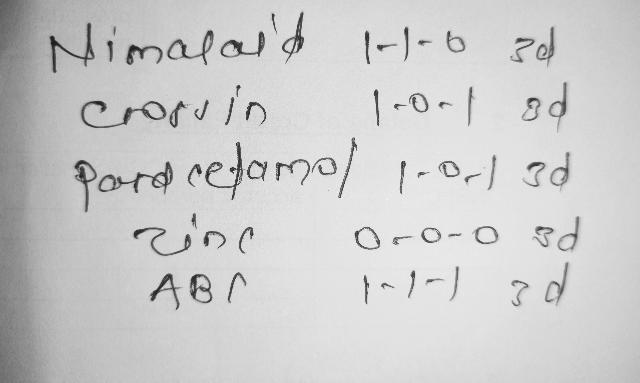 Nimalaid 1-1-0 3d
Crosrin 1-0-1 3d
Paracetamol 1-0-1 3d
Zinc 0-0-0 3d
ABC 1-1-1 3d